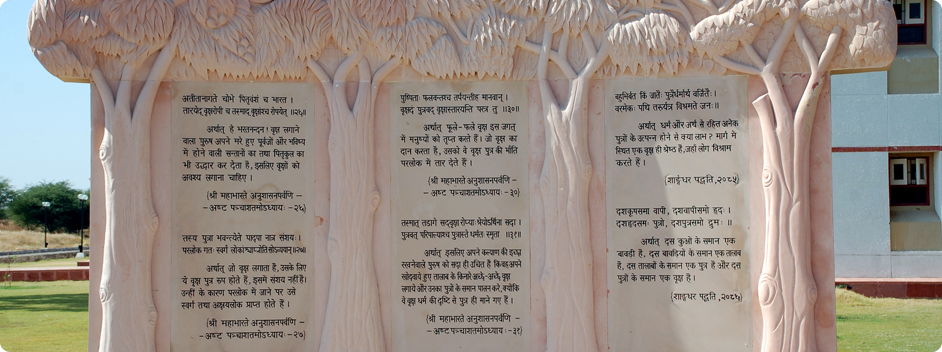 अतीतानागते चोभे पितृवंशं च भारत ।
तारयेद् वृक्षरोपी च तस्माद् वृक्षांश्च रोपयेत् ॥२६॥
अर्थात् हे भरतनन्दन ! वृक्ष लगाने
वाला पुरुष अपने मरे हुए पूर्वजों और भविष्य
में होने वाली सन्तानों का तथा पितृकुल का
भी उद्धार कर देता है, इसलिए वृक्षों को
अवश्य लगाना चाहिए ।
(श्री महाभारते अनुशासनपर्वणि –
– अष्ट पञ्चाशतमोऽध्यायः – २६)
तस्य पुत्रा भवन्त्येते पादपा नात्र संशयः ।
परलोक गतः स्वर्गं लोकांश्चाप्नोतिसोऽव्ययान् ॥२७॥
अर्थात् जो वृक्ष लगाता है, उसके लिए
ये वृक्ष पुत्र रूप होते हैं, इसमें संशय नहीं है।
उन्हीं के कारण परलोक में जाने पर उसे
स्वर्ग तथा अक्षयलोक प्राप्त होते हैं ।
(श्री महाभारते अनुशासनपर्वणि –
– अष्ट पञ्चाशतमोऽध्यायः – २७)
पुष्पिताः फलवन्तश्च तर्पयन्तीह मानवान् ।
वृक्षदं पुत्रवद् वृक्षास्तारयन्ति परत्र तु ॥३०॥
अर्थात् फूले - फले वृक्ष इस जगत्
में मनुष्यों को तृप्त करते हैं । जो वृक्ष का
दान करता है, उसको वे वृक्ष पुत्र की भाँति
परलोक में तार देते हैं ।
(श्री महाभारते अनुशासनपर्वणि –
– अष्ट पञ्चाशतमोऽध्यायः – ३०)
तस्मात् तडागे सद्वृक्षा रोप्याः श्रेयोऽर्थिना सदा ।
पुत्रवत् परिपाल्याश्च पुत्रास्ते धर्मतः स्मृताः ॥३१॥
अर्थात् इसलिए अपने कल्याण की इच्छा
रखनेवाले पुरुष को सदा ही उचित है कि वह अपने
खोदवाये हुए तालाब के किनारे अच्छे-अच्छे वृक्ष
लगाये और उनका पुत्रों के समान पालन करे, क्योंकि
वे वृक्ष धर्म की दृष्टि से पुत्र ही माने गए हैं ।
(श्री महाभारते अनुशासनपर्वणि –
– अष्ट पञ्चाशतमोऽध्यायः – ३१)
बहुभिर्बत किं जातैः पुत्रैर्धर्मार्थ वर्जितैः ।
वरमेकः पथि तरुर्यत्र विश्रमते जनः ॥
अर्थात् धर्म और अर्थ से रहित अनेक
पुत्रों के उत्पन्न होने से क्या लाभ ? मार्ग में
स्थित एक वृक्ष ही श्रेष्ठ है, जहाँ लोग विश्राम
करते हैं ।
(शार्ङ्गधर पद्धति, २०८५)
दशकूपसमा वापी, दशवापीसमो ह्रदः ।
दशह्रदसमः पुत्रो, दशपुत्रसमो द्रुमः ॥
अर्थात् दस कुओं के समान एक
बावड़ी है, दस बावड़ियों के समान एक तालाब
है, दस तालाबों के समान एक पुत्र है और दस
पुत्रों के समान एक वृक्ष है ।
(शार्ङ्गधर पद्धति, २०८६)